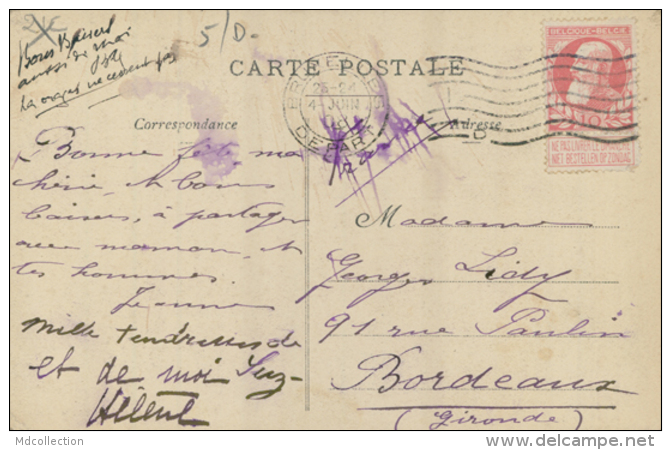 5/D.
Bons Baisers
aussi de moi
CARTE POSTALE
BELGIQUE-BELGIE
10
NE PAS LIVRER LE DIMANCHE
NIET BESTELLEN OP ZONDAG
4 JUIN
DEPART
Correspondance
Adresse
Bonne fête ma
chérie, et bons
baisers, à partager
avec maman, et
tes hommes.
Jeanne
Mille tendresses de
et de moi Suz-
Hélène
Madame
Georges Lidy
91 rue Paulin
Bordeaux
(Gironde)
Mdcollection
http://www.delcampe.net